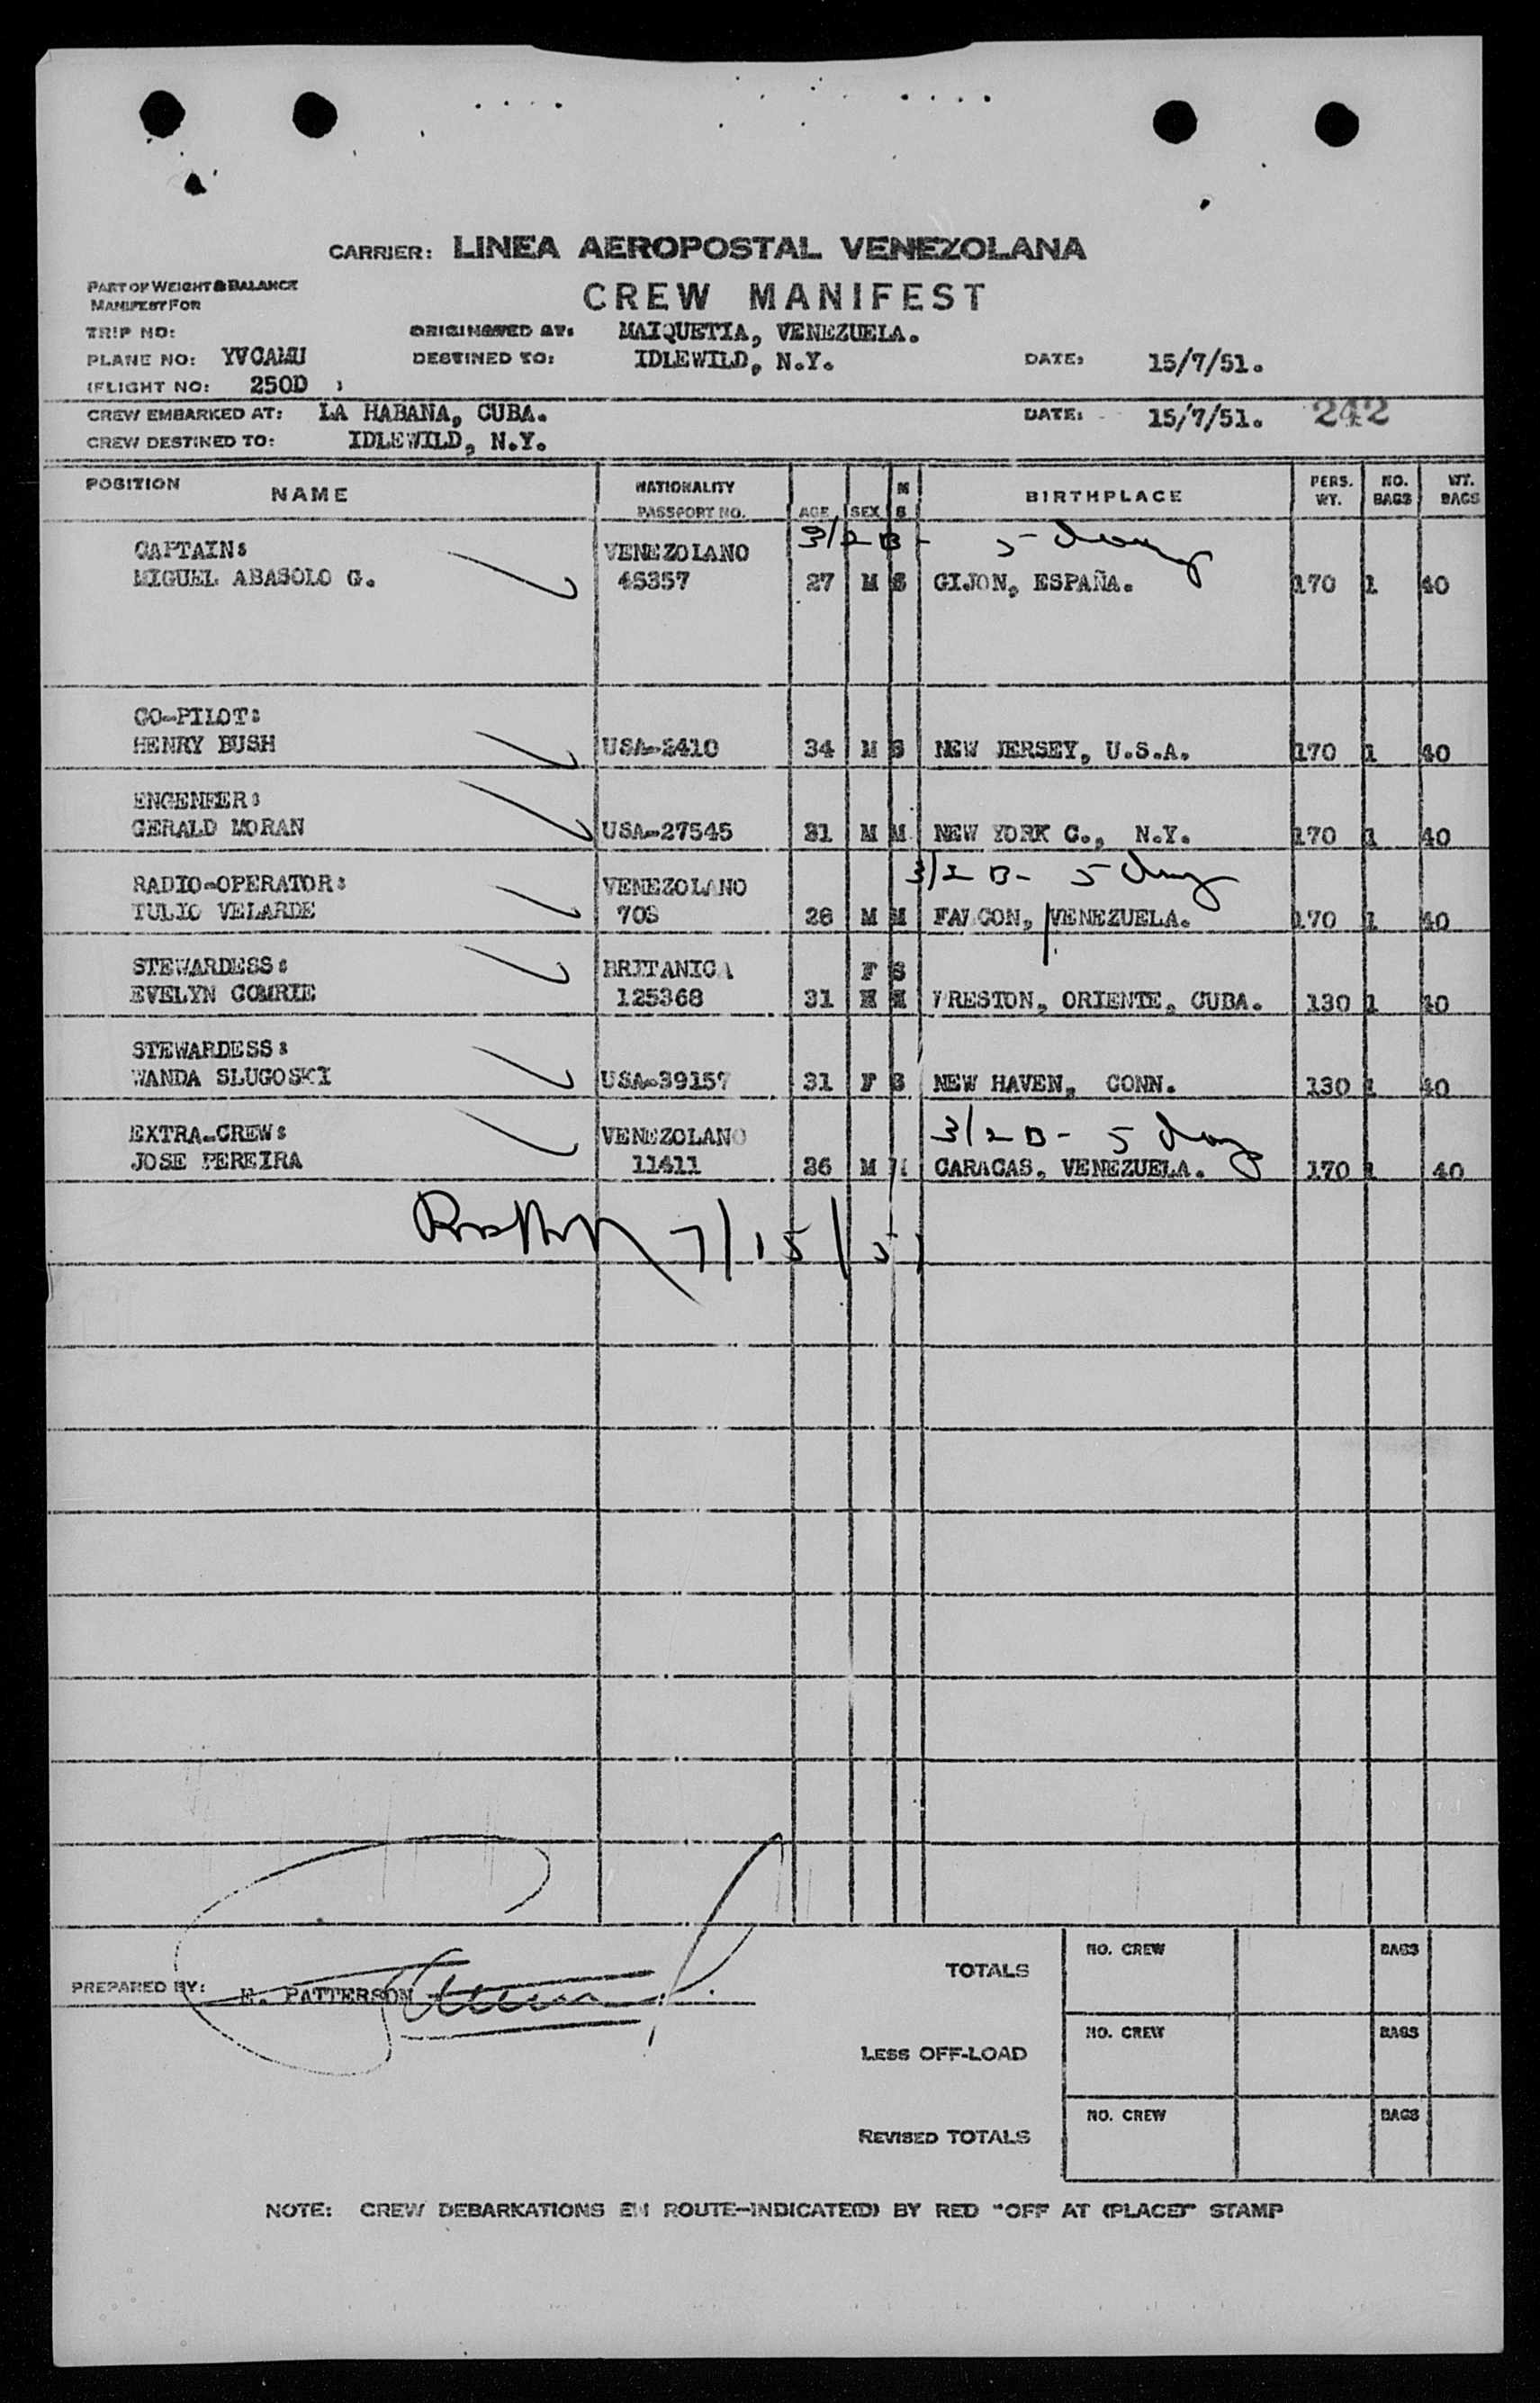 CARRIER: LINEA AEROPOSTAL VENEZOLANA
PART OF WEIGHT & BALANCE
MANIFEST FOR
CREW MANIFEST
TRIP NO: ORIGINATED AT: MAIQUETIA, VENEZUELA.
PLANE NO: YVCAMU DESTINED TO: IDLEWILD, N.Y. DATE: 15/7/51.
(FLIGHT NO: 250D
CREW EMBARKED AT: LA HABANA, CUBA. DATE: 15/7/51. 242
CREW DESTINED TO: IDLEWILD, N.Y.
POSITION NAME NATIONALITY PASSPORT NO. AGE SEX M S BIRTHPLACE PERS. WT. NO. BAGS WT. BAGS
CAPTAIN: VENEZOLANO 3/2 B- 5 days
MIGUEL ABASOLO G. 48357 27 M S GIJON, ESPAÑA. 170 1 40
CO-PILOT:
HENRY BUSH USA-2410 34 M S NEW JERSEY, U.S.A. 170 1 40
ENGENEER:
GERALD MORAN USA-27545 31 M M NEW YORK C., N.Y. 170 1 40
RADIO-OPERATOR: VENEZOLANO 3/2 B- 5 days
TULIO VELARDE 708 28 M M FALCON, VENEZUELA. 170 1 40
STEWARDESS: BRITANICA F S
EVELYN GOMRIE 125368 31 PRESTON, ORIENTE, CUBA. 130 1 40
STEWARDESS:
WANDA SLUGOSKI USA-39157 31 F S NEW HAVEN, CONN. 130 1 40
EXTRA-CREW: VENEZOLANO 3/2 B- 5 days
JOSE PEREIRA 11411 36 M M CARACAS, VENEZUELA. 170 1 40
7/15/51
NO. CREW BAGS
TOTALS
PREPARED BY: E. PATTERSON
NO. CREW BAGS
LESS OFF-LOAD
NO. CREW BAGS
REVISED TOTALS
NOTE: CREW DEBARKATIONS EN ROUTE-INDICATE(D) BY RED "OFF AT (PLACE)" STAMP